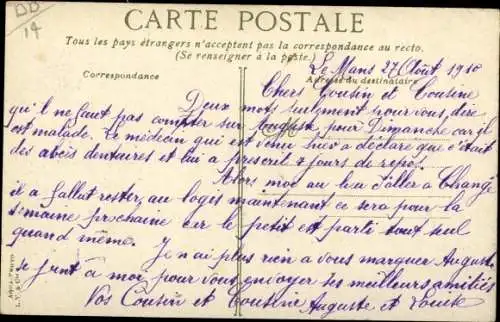 DD
14
CARTE POSTALE
Tous les pays étrangers n'acceptent pas la correspondance au recto.
(Se renseigner à la poste)
Correspondance
Adresse du destinataire
Le Mans 27 Août 1910
Chers Cousin et Cousine
Deux mots seulement pour vous dire
qu'il ne faut pas compter sur Auguste pour Dimanche car il
est malade. Le médecin qui est venu hier a déclaré que c'était
des abcès dentaires et lui a prescrit 7 jours de repos.
Alors moi au lieu d'aller à Changé
il a fallut rester au logis maintenant ce sera pour la
semaine prochaine car le petit est parti tout seul
quand même. Je n'ai plus rien a vous marquer Auguste
se joint a moi pour vous envoyer ses meilleurs amitiés
Vos Cousin et Cousine Auguste et Louise